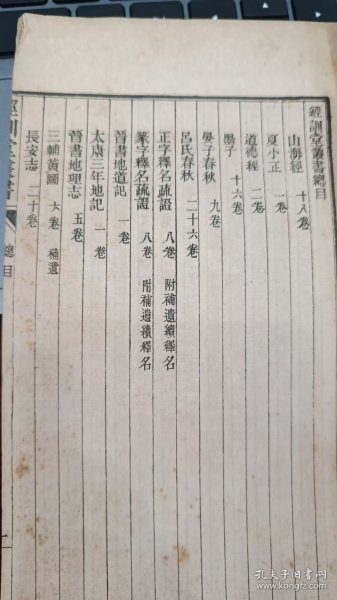 經訓堂叢書總目
山海經 十八卷
夏小正 一卷
道德經 二卷
墨子 十六卷
晏子春秋 九卷
呂氏春秋 二十六卷
正字釋名疏證 八卷 附補遺續釋名
篆字釋名疏證 八卷 附補遺續釋名
晉書地道記 一卷
太康三年地記 一卷
晉書地理志 五卷
三輔黃圖 六卷 補遺
長安志 二十卷
經訓堂叢書 總目 一
孔夫子旧书网
kongfz.com